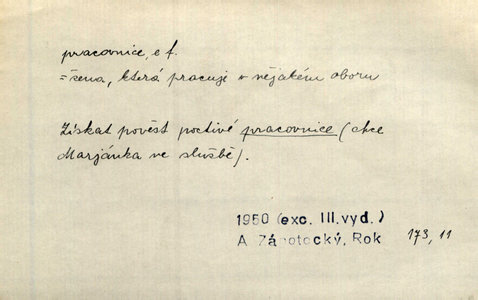 pracovnice, e f.
= žena, která pracuje v nějakém oboru
Získat pověst poctivé pracovnice (chce
Marjánka ve službě).
1950 (exc. III. vyd.)
A. Zápotocký, Rok 173, 11